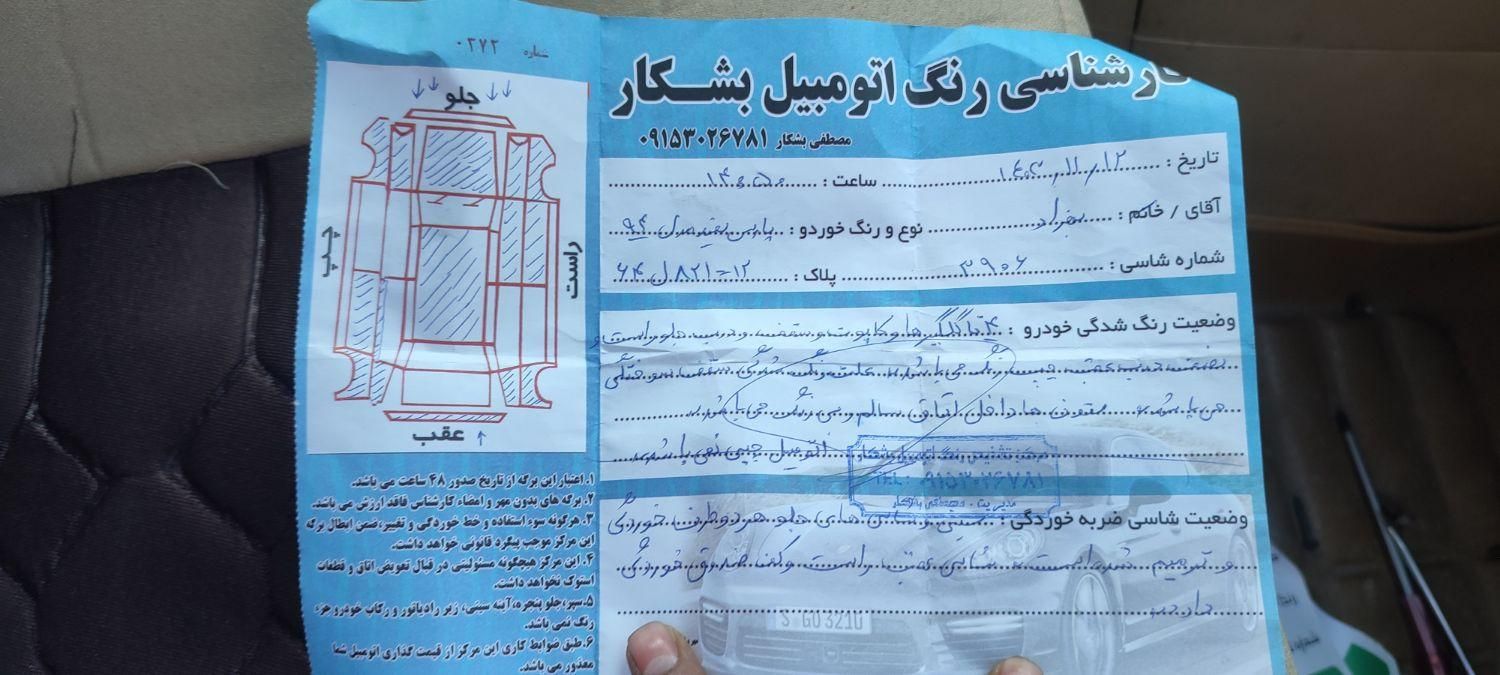 کارشناسی رنگ اتومبیل بشکار
مصطفی بشکار ۰۹۱۵۳۰۲۶۷۸۱
شماره ۰۲۷۲
جلو
چپ
راست
عقب
تاریخ : ۱۴۰۳/۱۱/۱۲ ساعت : ۱۴:۵۰
آقای / خانم : نوع و رنگ خوردو : پارس سفید مدل ۹۴
شماره شاسی : ۳۹۰۶ پلاک : ۱۲-۸۲۱ل۶۴
وضعیت رنگ شدگی خودرو : ۴ تا گلگیرها و کاپوت و سقف و درب جلو راست و
نصف درب عقب چپ رنگ می باشد علت رنگ شدگی سقف سوختگی
می باشد ستون ها داخل اتاق سالم و بی رنگ می باشد
اتومبیل چپی نمی باشد
مرکز تشخیص رنگ اتومبیل بشکار
TEL: ۰۹۱۵۳۰۲۶۷۸۱
مدیریت - مصطفی بشکار
وضعیت شاسی ضربه خوردگی : سینی و شاسی های جلو هر دو طرف خوردگی
و ترمیم شده است شاسی عقب راست و کف صندوق خوردگی
دارد
S GO 3210
۱. اعتبار این برگه از تاریخ صدور ۴۸ ساعت می باشد.
۲. برگه های بدون مهر و امضاء کارشناس فاقد ارزش می باشد.
۳. هرگونه سوء استفاده و خط خوردگی و تغییر، ضمن ابطال برگه
این مرکز موجب پیگرد قانونی خواهد داشت.
۴. این مرکز هیچگونه مسئولیتی در قبال تعویض اتاق و قطعات
استوک نخواهد داشت.
۵. سپر، جلو پنجره، آینه سینی، زیر رادیاتور و رکاب خودرو جزء
رنگ نمی باشد.
۶. طبق ضوابط کاری این مرکز از قیمت گذاری اتومبیل شما
معذور می باشد.